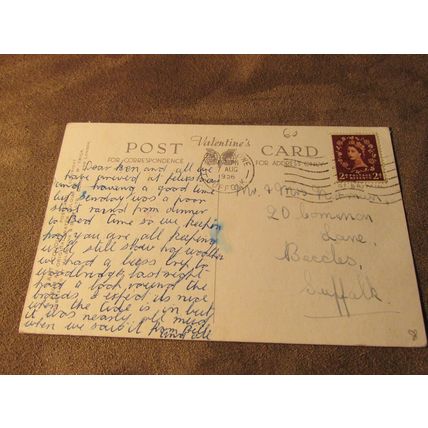 POST Valentine's CARD
FOR CORRESPONDENCE
FOR ADDRESS ONLY
60
7 AUG
2D 2D
Dear Mon and all we
have arrived at felixstowe
and having a good time
but Sunday was a poor
start rained from dinner
to Bed time so we
hope you are all keeping
well, still show
we had a bus to
woodbridge last night
had a look round the
boats, I expect its nice
when the tide is in but
it was nearly all mud
when we saw it from Bill
and
Mr & Mrs
20 Common
Lane,
Beccles,
Suffolk.
8